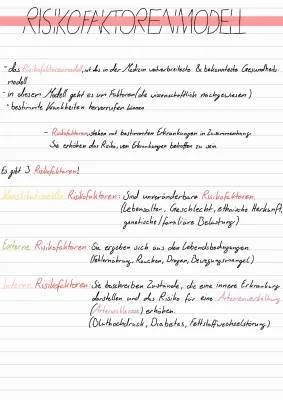 RISIKOFAKTORENMODELL
- das Risikofaktorenmodell, ist das in der Medizin verbreiteste & bekannteste Gesundheits-
modell
- in diesem Modell geht es um Faktoren (die wissenschaftlich nachgewiesen)
- bestimmte Krankheiten hervorrufen können
- Risikofaktoren stehen mit bestimmten Erkrankungen in Zusammenhang
Sie erhöhen das Risiko, von Erkrankungen betroffen zu sein
Es gibt 3 Risikofaktoren!
Konstitutionelle Risikofaktoren: Sind unveränderbare Risikofaktoren
(Lebensalter, Geschlecht, ethnische Herkunft,
genetische/familiäre Belastung)
Externe Risikofaktoren: Sie ergeben sich aus den Lebensbedingungen
(Fehlernährung, Rauchen, Drogen, Bewegungsmangel)
Interne Risikofaktoren: Sie beschreiben Zustände, die eine innere Erkrankung
darstellen und das Risiko für eine Arterienverkalkung
(Arteriosklerose) erhöhen.
(Bluthochdruck, Diabetes, Fettstoffwechselstörung)